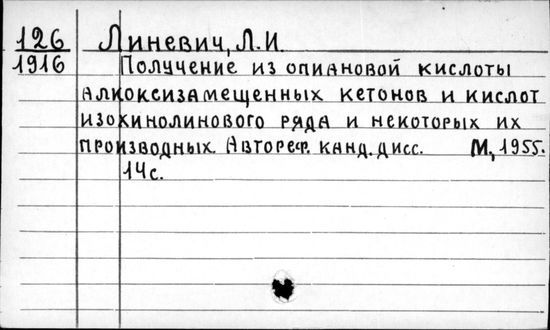 126 Линевич, Л.И.
1916 Получение из опиановой кислоты
алкоксизамещенных кетонов и кислот
изохинолинового ряда и некоторых их
производных. Автореф. канд. дисс. М., 1955.
14 с.